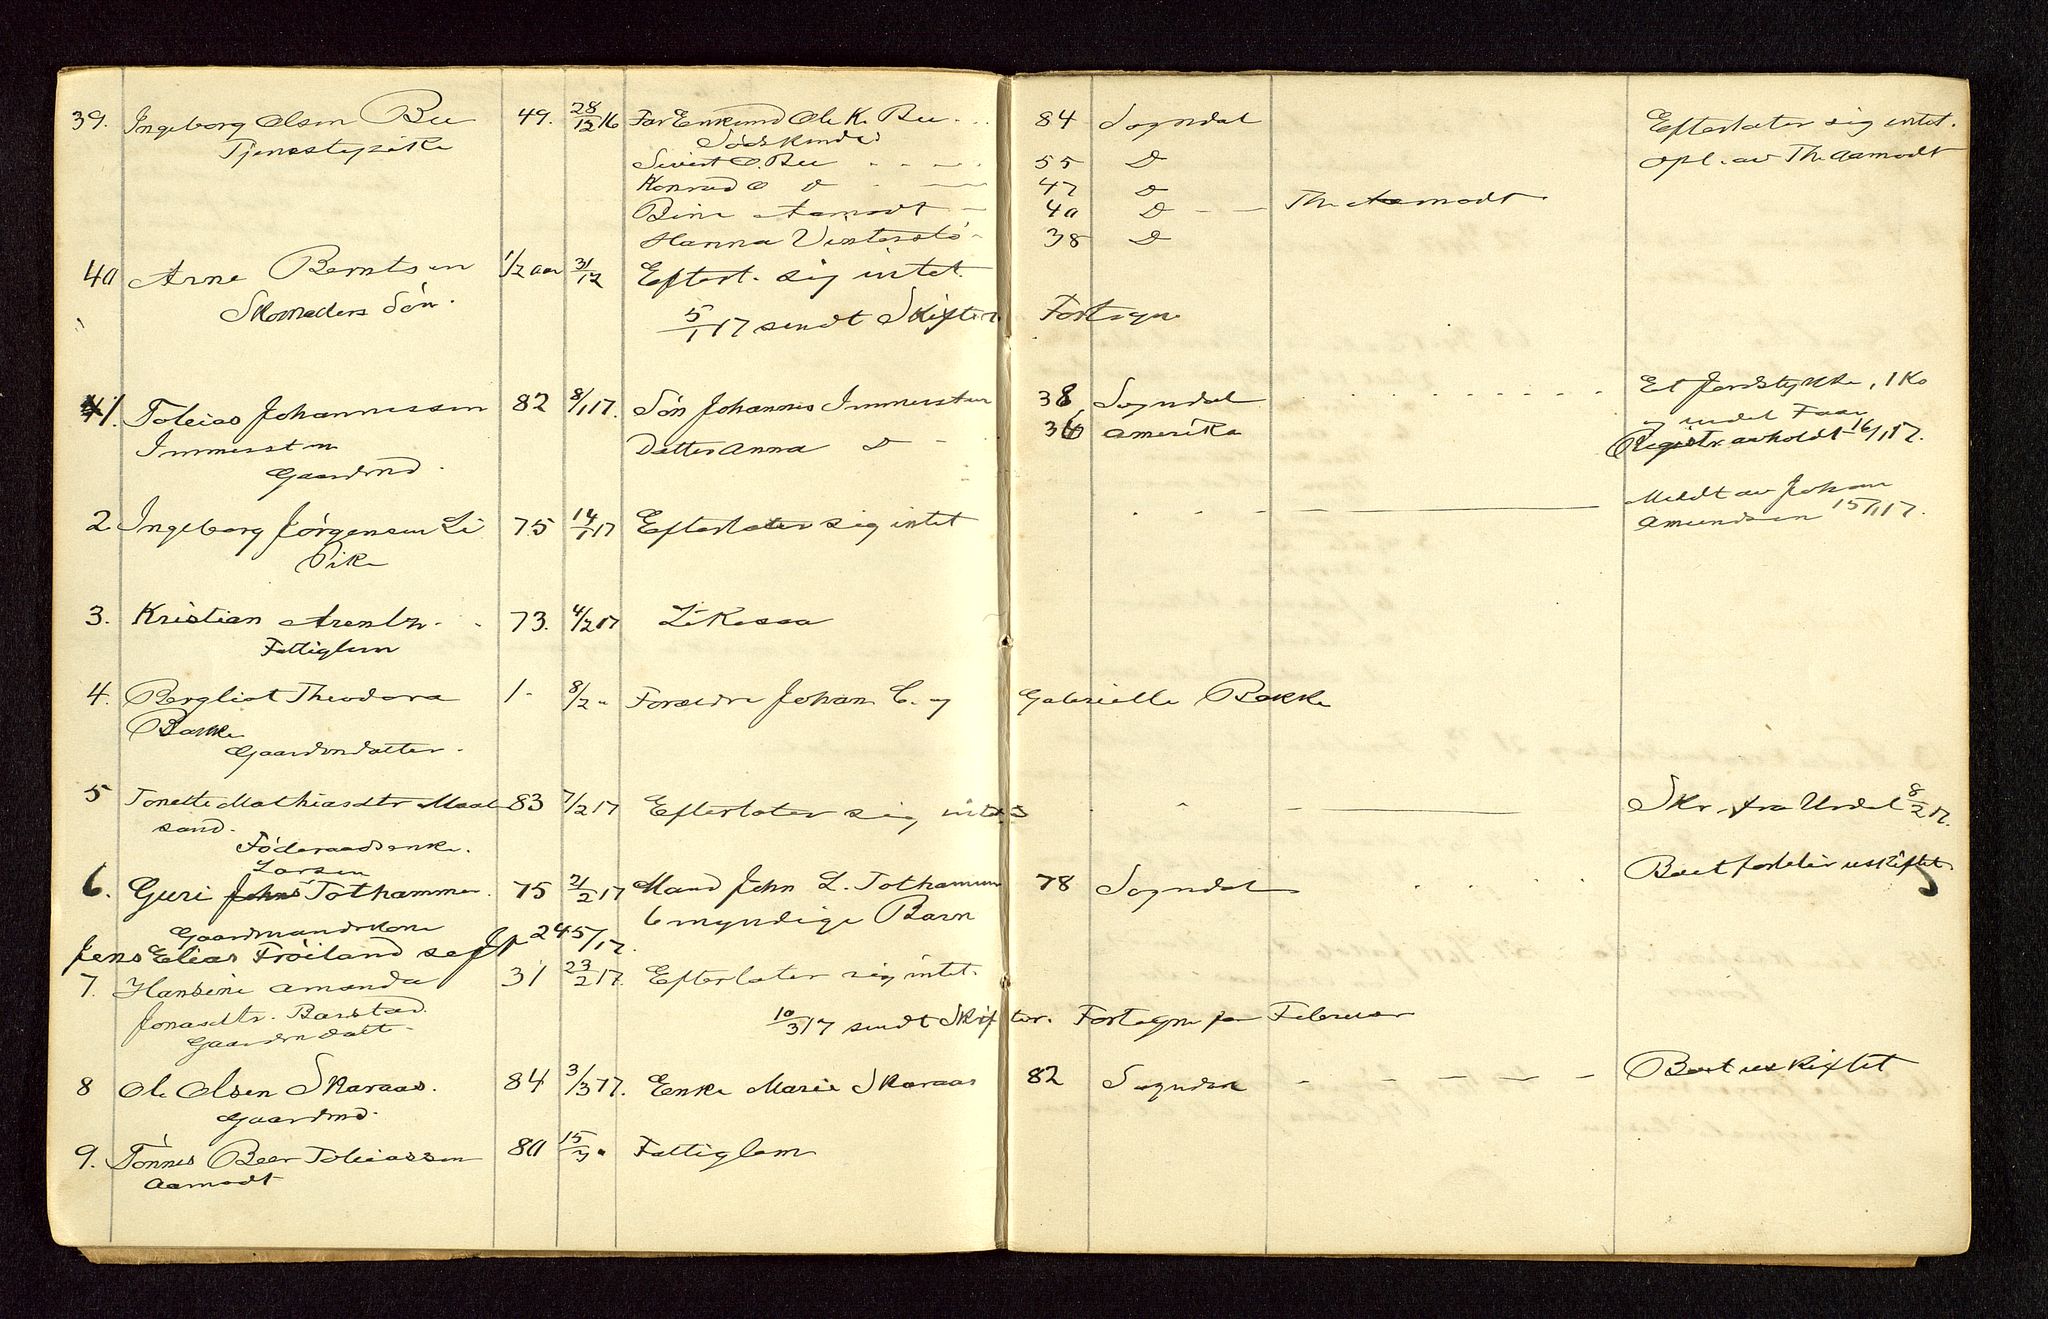 39. Ingeborg Olsen Bu 49. 28/12 16 Far Enkemd Ole K. Bu 84 Sogndal Efterlater sig intet.
Tjenestepike Sødskende opl. av Th. Aamodt
Sivert O. Bu 55 D
Konrad O D 47 D
Bine Aamodt 40 D Th. Aamodt
Hanna Vinterstø 38 D
40 Arne Berntsen 1/2 aar 31/12 Efterl. sig intet.
Skomaders Søn. 5/1 17 sendt Skifter. Fortegn
41. Tobias Johannessen 82 8/1 17. Søn Johannes Immerstein 38 Sogndal Et Jordstykke, 1 Ko
Immerstein Datter Anna D 36 Amerika og indel Faar
Gaardmd. Registr. avholdt 16/1 17.
Meldt av Johan
2. Ingeborg Jørgensen Li 75 14/1 17 Efterlater sig intet Amundsen 15/1 17.
Pike
3. Kristian Arentzn. 73. 4/2 17 Likassa
Fattiglem
4. Bergliot Theodora 1 - 8/2 " Forældre Johan C. og Gabrielle Bakke
Bakke
Gaardmdatter.
5 Tonette Mathiasdtr Maal- 83 7/2 17 Efterlater sig intet Skr. fra Urdal 8/2 17.
sand.
Føderaadsenke.
Larsen
6. Guri Johns Tothammer. 75 21/2 17 Mand John L. Tothammer 78 Sogndal Boet forblir uskiftet
Gaardmandskone 6 myndige Barn
Jens Elias Frøiland 24 5/17.
7. Hansine Amanda 31 23/2 17. Efterlater sig intet.
Jonasdtr. Barstad 10/3 17 sendt Skifter. Fortegn for Februar
Gaardmdatt.
8 Ole Olsen Skaraas. 84 3/3 17. Enke Marie Skaraas 82 Sogndal Boet uskiftet
Gaardmd.
9. Tønnes Beer Tobiassen 80 15/3 " Fattiglem
Aamodt